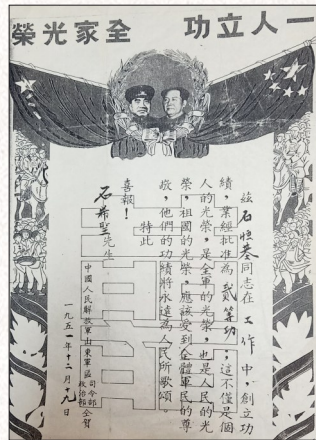 一人立功 全家光榮
茲石恒基同志在工作中,創立功
績,業經批准為貳等功,這不僅是個
人的光榮,是全軍的光榮,也是人民的光
榮,祖國的光榮,應該受到全體軍民的尊
敬,他們的功績將永遠為人民所歌頌。
特此
喜報!
石希堅先生
中國人民解放軍山東軍區司令部政治部仝賀
一九五一年十二月十九日